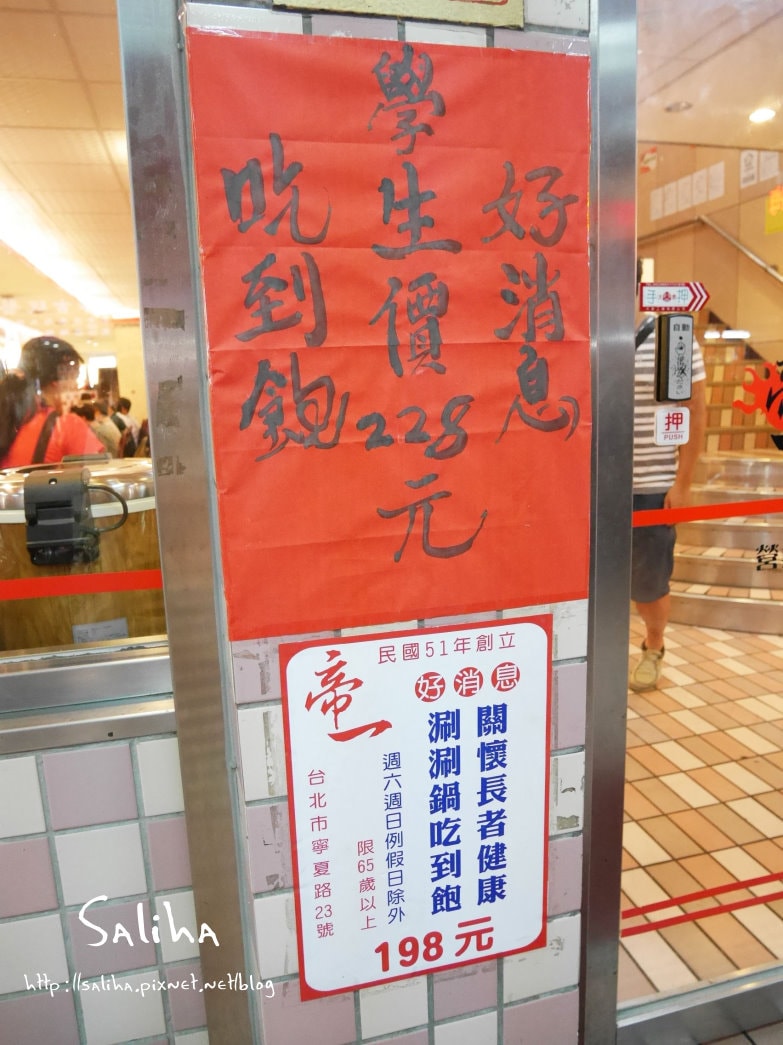 好消息
學生價228元
吃到飽
民國51年創立
帝一
好消息
關懷長者健康
涮涮鍋吃到飽
週六週日例假日除外
限65歲以上
台北市寧夏路23號
198元
自動
押
PUSH
營
Saliha
http://saliha.pixnet.net/blog